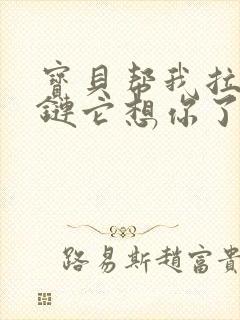 寶貝幫我拉
鏈它想你了
路易斯趙富貴